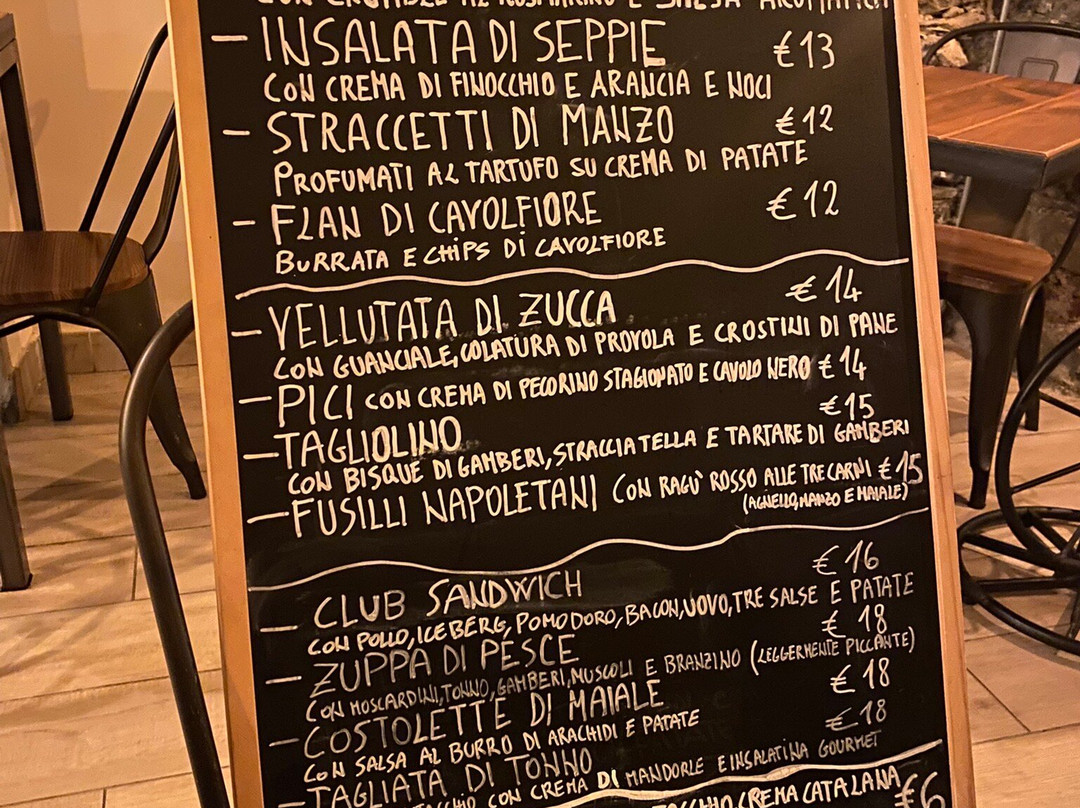 CON CRUMBLE AL ROSMARINO E SALSA AROMATICA
– INSALATA DI SEPPIE €13
CON CREMA DI FINOCCHIO E ARANCIA E NOCI
– STRACCETTI DI MANZO €12
PROFUMATI AL TARTUFO SU CREMA DI PATATE
– FLAN DI CAVOLFIORE €12
BURRATA E CHIPS DI CAVOLFIORE
– VELLUTATA DI ZUCCA €14
CON GUANCIALE, COLATURA DI PROVOLA E CROSTINI DI PANE
– PICI CON CREMA DI PECORINO STAGIONATO E CAVOLO NERO €14
– TAGLIOLINO €15
CON BISQUE DI GAMBERI, STRACCIATELLA E TARTARE DI GAMBERI
– FUSILLI NAPOLETANI CON RAGU' ROSSO ALLE TRE CARNI €15
(AGNELLO, MANZO E MAIALE)
– CLUB SANDWICH €16
CON POLLO, ICEBERG, POMODORO, BACON, UOVO, TRE SALSE E PATATE
– ZUPPA DI PESCE €18
CON MOSCARDINI, TONNO, GAMBERI, MUSCOLI E BRANZINO (LEGGERMENTE PICCANTE)
– COSTOLETTE DI MAIALE €18
CON SALSA AL BURRO DI ARACHIDI E PATATE
– TAGLIATA DI TONNO €18
CON CREMA DI MANDORLE E INSALATINA GOURMET
CREMA CATALANA €6